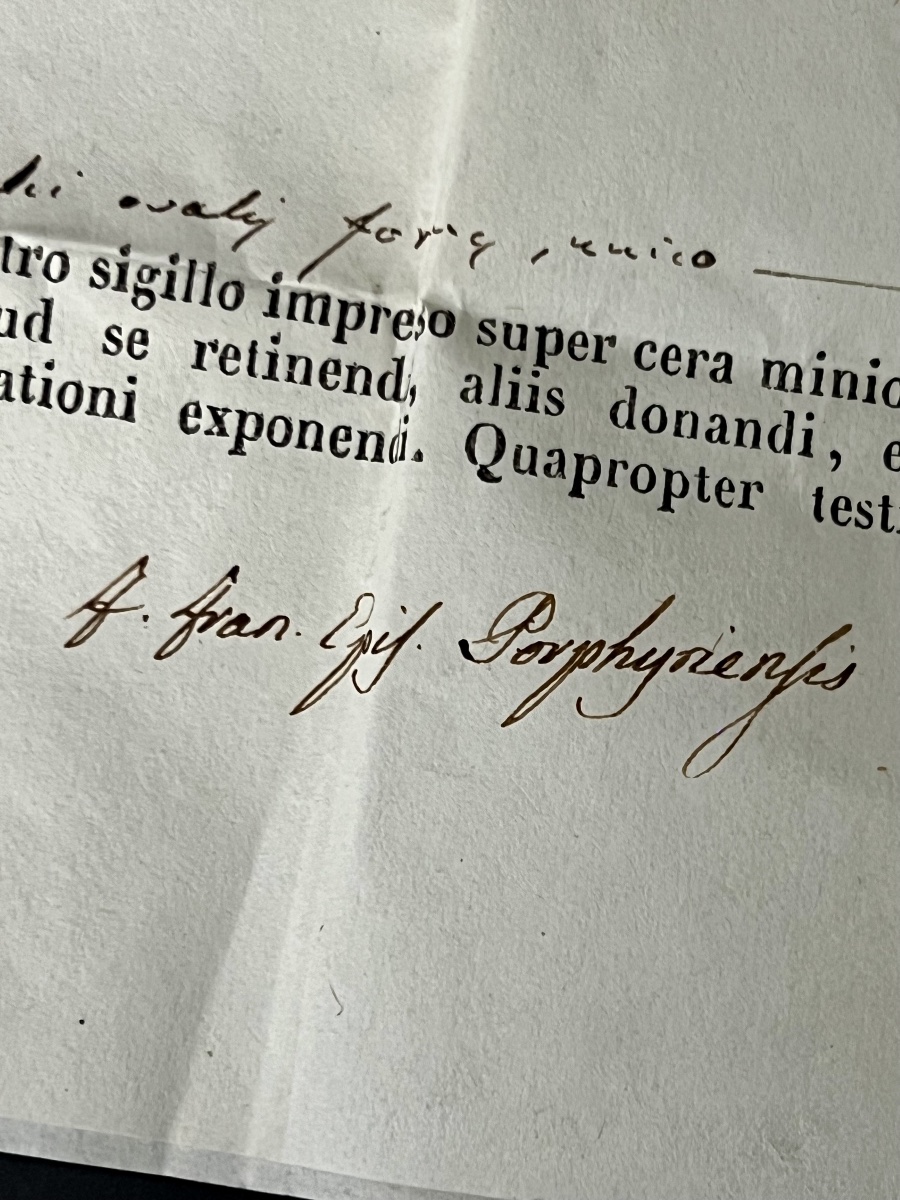 ovalis formæ, unico
tro sigillo impreso super cera minio
ud se retinendi, aliis donandi, e
ationi exponendi. Quapropter testi
F. Fran. Epis. Porphyriensis